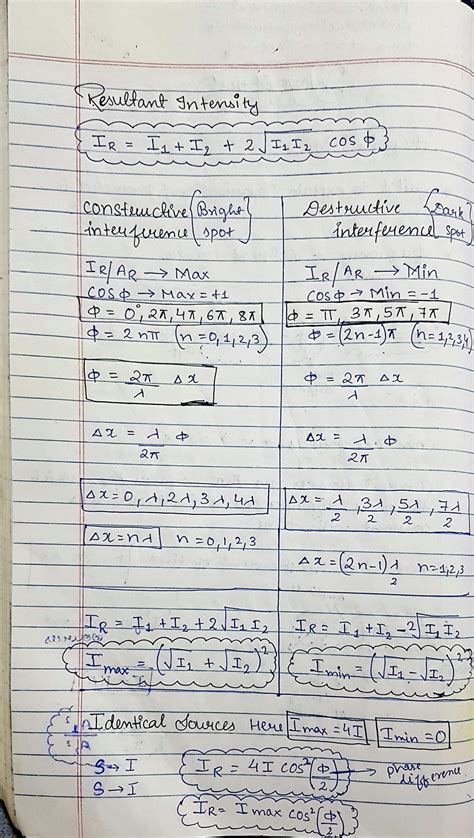 Resultant Intensity
I_R = I₁ + I₂ + 2√(I₁I₂) cos ϕ
Constructive {Bright
interference spot}
I_R/A_R → Max
cosϕ → Max = +1
ϕ = 0°, 2π, 4π, 6π, 8π
ϕ = 2nπ (n=0,1,2,3)
ϕ = 2π/λ Δx
Δx = λ/2π · ϕ
Δx = 0, λ, 2λ, 3λ, 4λ
Δx = nλ n = 0,1,2,3
I_R = I₁ + I₂ + 2√(I₁I₂)
I_max = (√I₁ + √I₂)²
Destructive {Dark
interference spot}
I_R/A_R → Min
cosϕ → Min = -1
ϕ = π, 3π, 5π, 7π
ϕ = (2n-1)π (n=1,2,3,4)
ϕ = 2π/λ Δx
Δx = λ/2π · ϕ
Δx = λ/2, 3λ/2, 5λ/2, 7λ/2
Δx = (2n-1)λ/2 n=1,2,3
I_R = I₁ + I₂ - 2√(I₁I₂)
I_min = (√I₁ - √I₂)²
Identical Sources Here I max = 4I I min = 0
S → I
S → I
I_R = 4I cos²(ϕ/2) → phase
difference
I_R = I max cos²(ϕ/2)